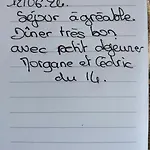 12/06.26.
Séjour agréable.
Dîner très bon
avec petit dejeuner
Morgane et Cédric
du 14.